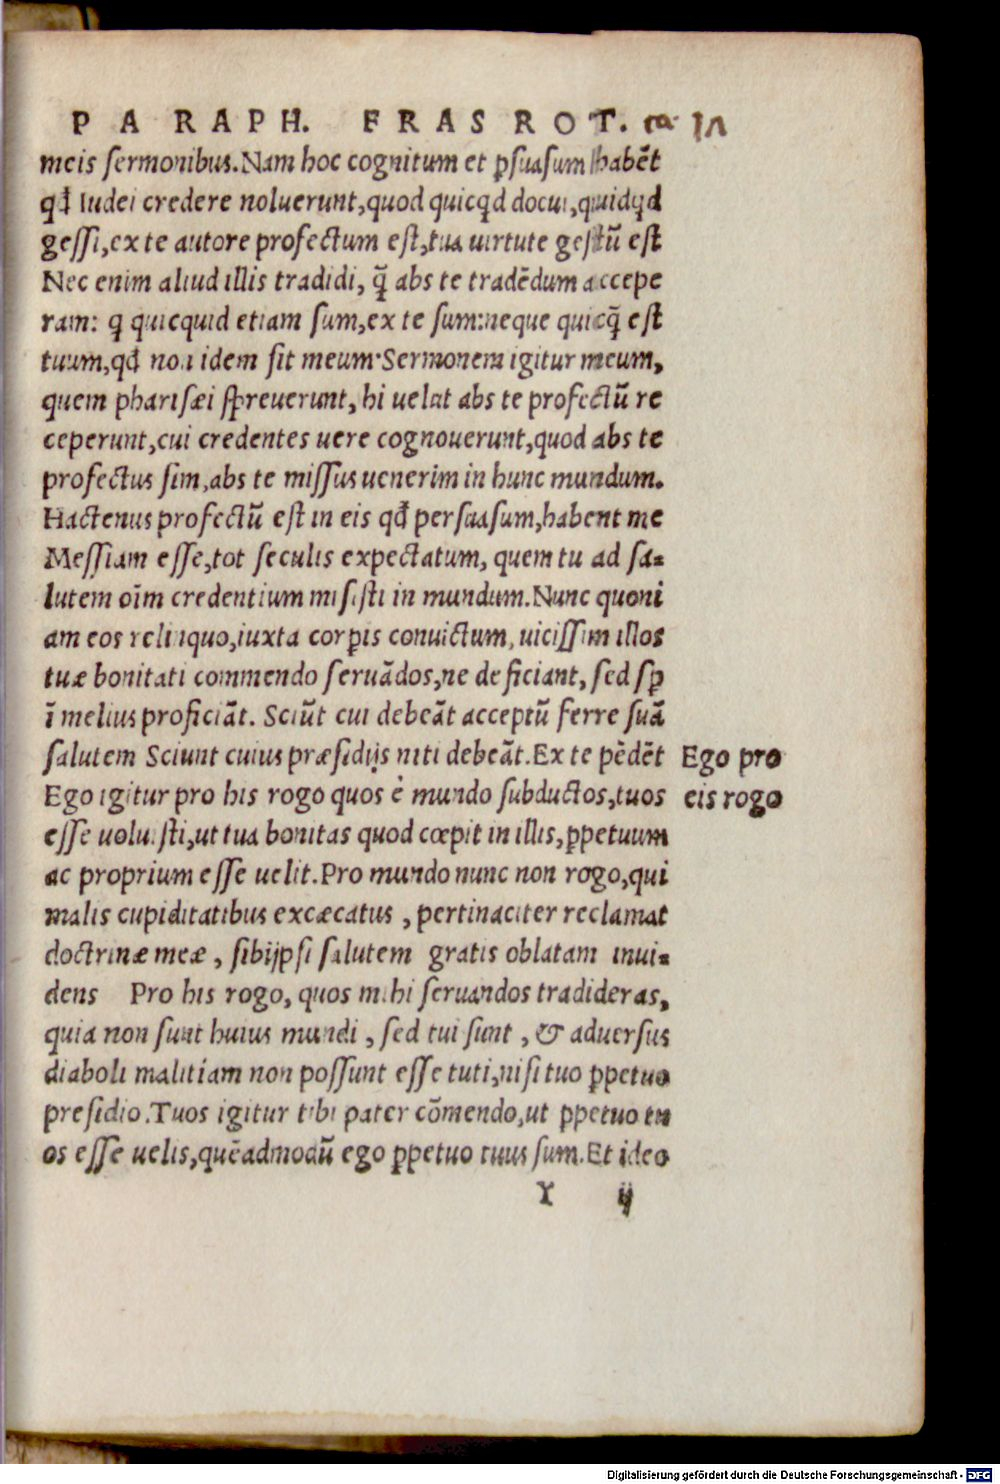 PARAPH. FRAS ROT.
meis sermonibus. Nam hoc cognitum et ꝑsuasum habēt
qđ Iudei credere noluerunt, quod quicqd docui, quidqd
gessi, ex te autore profectum est, tua uirtute gestū est
Nec enim aliud illis tradidi, q̃ abs te tradēdum accepe
ram: ꝙ quicquid etiam sum, ex te sum: neque quicq̃ est
tuum, qđ non idem sit meum· Sermonem igitur meum,
quem pharisæi spreuerunt, hi uelut abs te profectū re
ceperunt, cui credentes uere cognouerunt, quod abs te
profectus sim, abs te missus uenerim in hunc mundum.
Hactenus profectū est in eis qđ persuasum, habent me
Messiam esse, tot seculis expectatum, quem tu ad sa-
lutem oīm credentium misisti in mundum. Nunc quoni
am eos relinquo, iuxta corꝑis conuictum, uicissim illos
tuæ bonitati commendo seruādos, ne deficiant, sed sꝑ
ī melius proficiāt. Sciūt cui debeāt acceptū ferre suā
salutem Sciunt cuius præsidijs niti debeāt. Ex te pēdēt
Ego pro
Ego igitur pro his rogo quos è mundo subductos, tuos
eis rogo
esse uoluisti, ut tua bonitas quod cœpit in illis, ꝑpetuum
ac proprium esse uelit. Pro mundo nunc non rogo, qui
malis cupiditatibus excæcatus, pertinaciter reclamat
doctrinæ meæ, sibijpsi salutem gratis oblatam inui-
dens Pro his rogo, quos mihi seruandos tradideras,
quia non sunt huius mundi, sed tui sunt, & aduersus
diaboli malitiam non possunt esse tuti, nisi tuo ꝑpetuo
presidio. Tuos igitur tibi pater cōmendo, ut ꝑpetuo tu
os esse uelis, quēadmodū ego ꝑpetuo tuus sum. Et ideo
Y ij
Digitalisierung gefördert durch die Deutsche Forschungsgemeinschaft - DFG